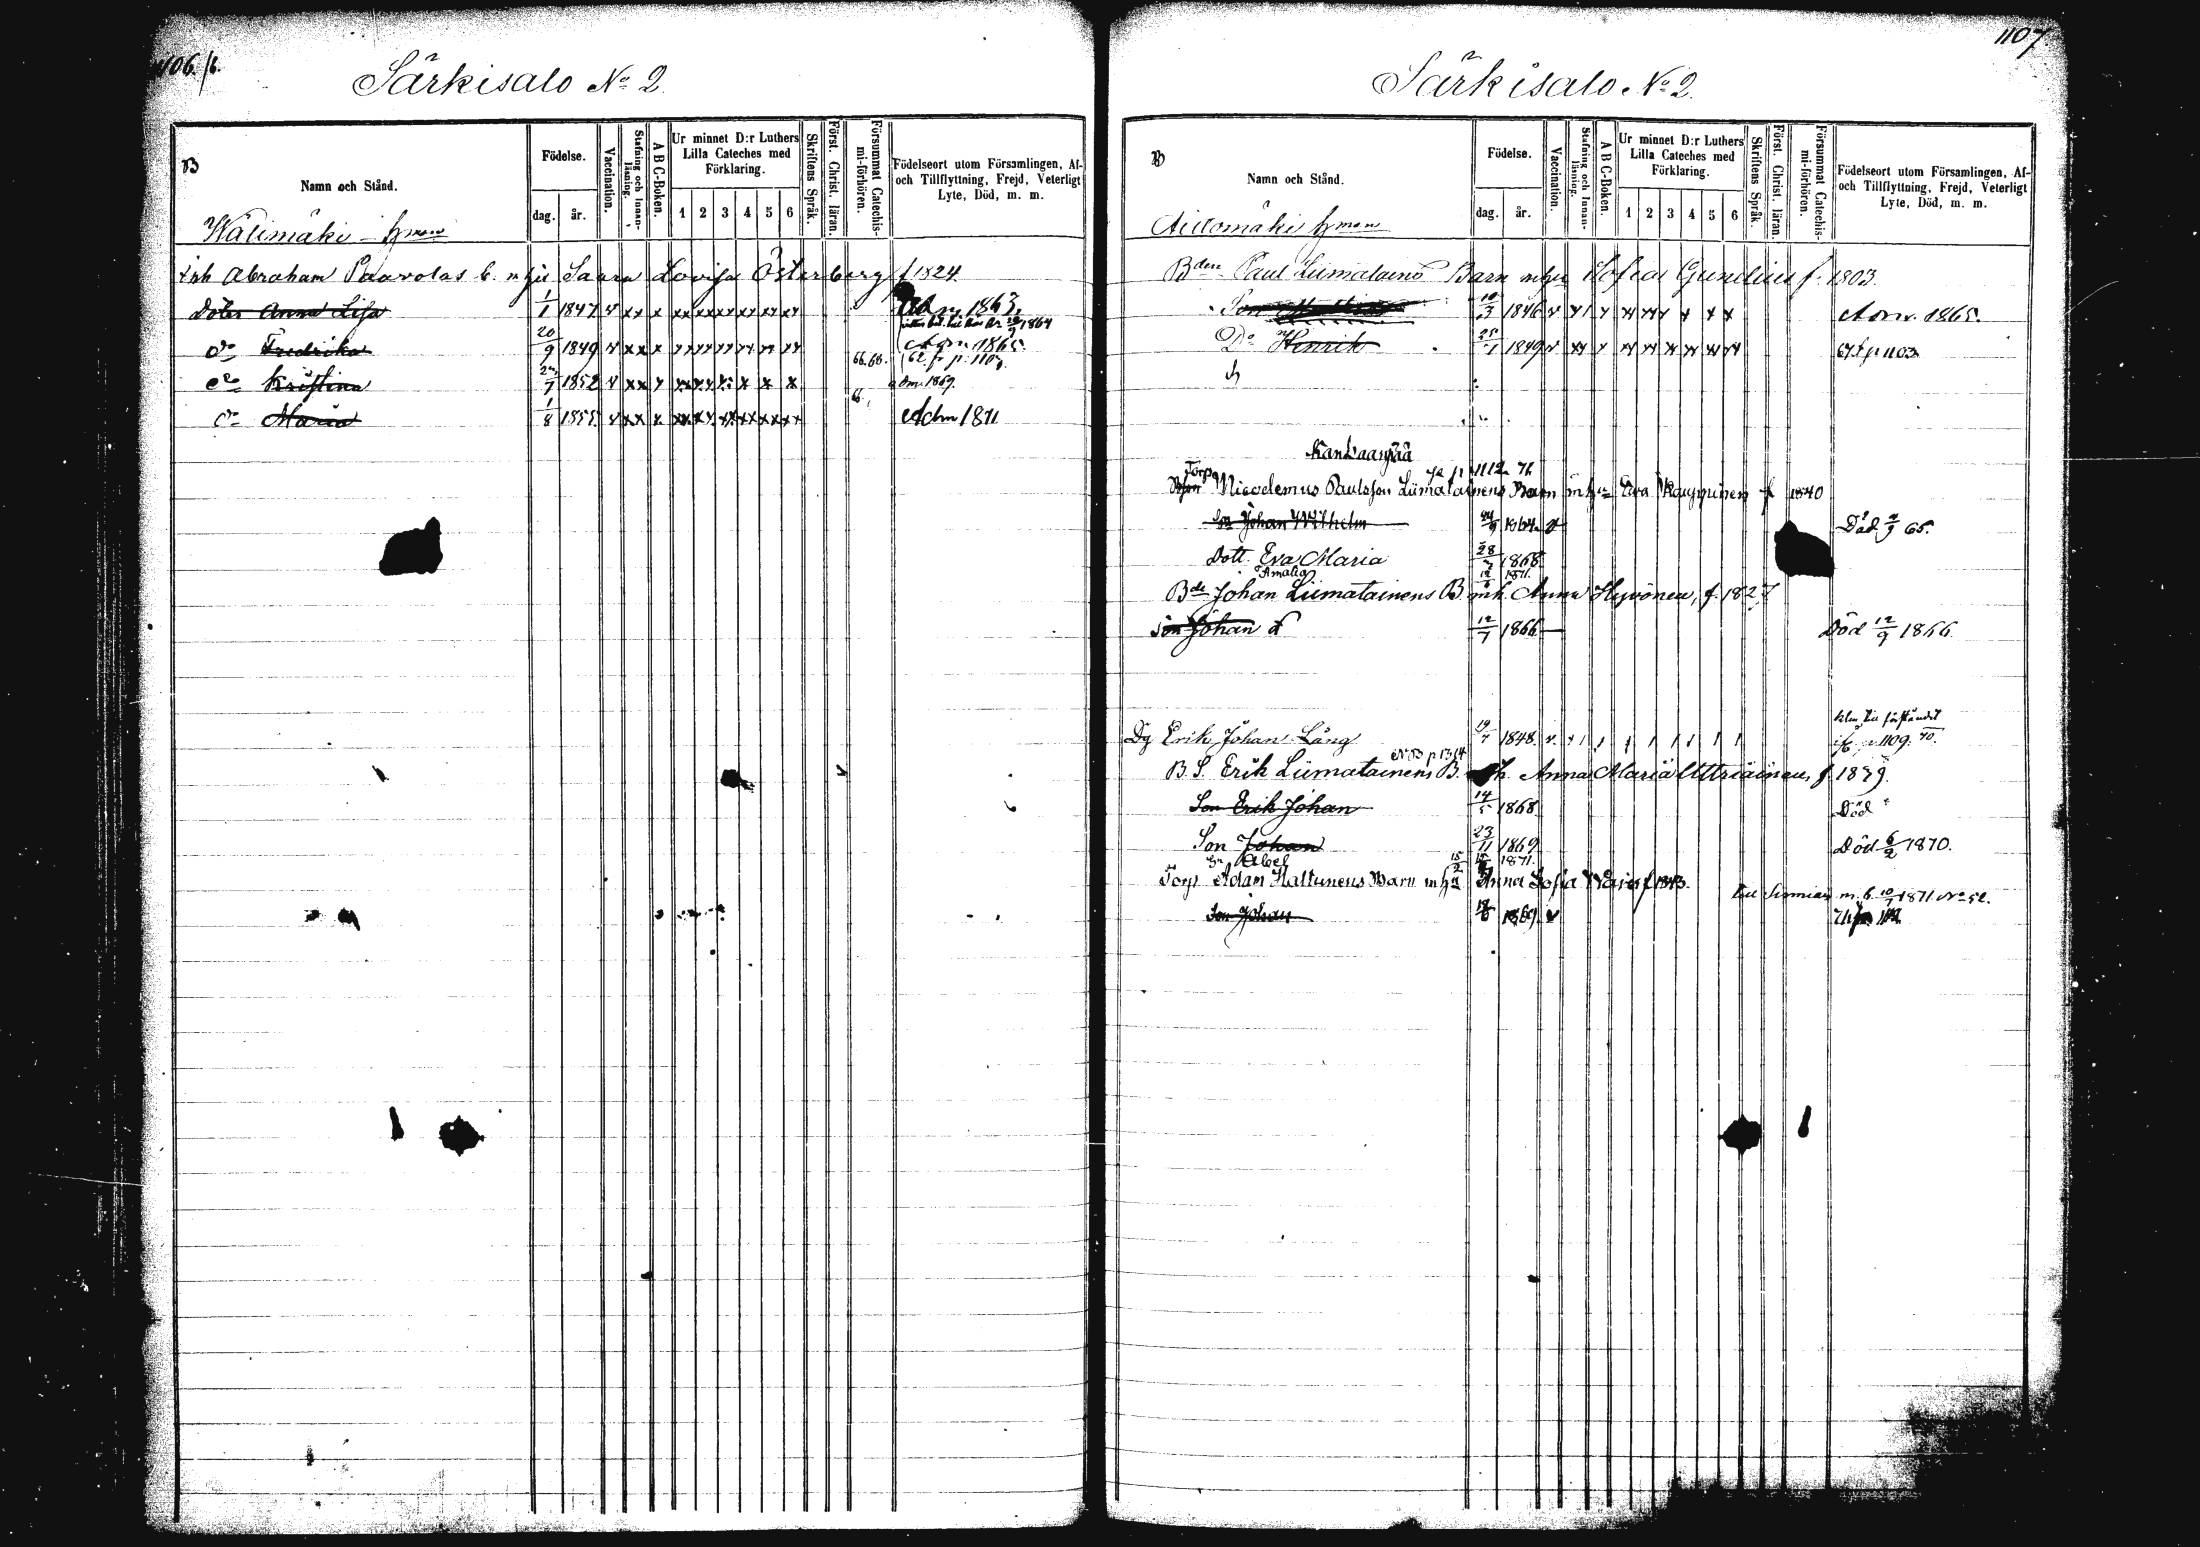 1106./6.
Särkisalo No 2.
B
Namn och Stånd.
Födelse.
dag. år.
Vaccination.
Stafning och Innan-läsning.
A B C-Boken.
Ur minnet D:r Luthers Lilla Cateches med Förklaring.
1 2 3 4 5 6
Skriftens Språk.
Först. Christ. läran.
Försummat Catechis-mi-förhören.
Födelseort utom Församlingen, Af- och Tillflyttning, Frejd, Veterligt Lyte, Död, m. m.
Wälimäki hman
Inh Abraham Paavolas b. m hu Saara Lovisa Österberg f 1824
Doter Anna Lisa 1/1 1847 Adm. 1863.
do Fredrika 20/9 1849 Adm 1865.
do Kristina 1852 66.68. 62. fr p. 1103. adm. 1869.
do Maria 1/8 1855. Adm 1871
1107
Särkisalo No 2.
B
Namn och Stånd.
Födelse.
dag. år.
Vaccination.
Stafning och Innan-läsning.
A B C-Boken.
Ur minnet D:r Luthers Lilla Cateches med Förklaring.
1 2 3 4 5 6
Skriftens Språk.
Först. Christ. läran.
Försummat Catechis-mi-förhören.
Födelseort utom Församlingen, Af- och Tillflyttning, Frejd, Veterligt Lyte, Död, m. m.
Automäki hman
Bden Paul Liimatains Barn m hu Sofia Gundlius f. 1803.
Son 10/3 1846 Adm. 1865.
Do Henrik 25/1 1849 67 f p 1103
Kankaanpää
Torp Nicodemus Paulsson Liimatainens Barn m hu Eva Kauppinen f 1840
Son Johan Wilhelm 1864 Död 65.
Dott. Eva Maria 28 1868
Amalia 12/6 1871.
Bde Johan Liimatainens B. mh. Anna Hyvönen, f. 1827
Son Johan 12/7 1866 Död 12/9 1866.
Dg Erik Johan Lång 19/7 1848. p 1109. 70.
No 33 p 1314
B. S. Erik Liimatainens B. mh. Anna Maria Uttriainen, f 1839.
Son Erik Johan 14/5 1868 Död
Son Johan 23/11 1869 Död 6/2 1870.
Sn Abel 1871.
Torp Adam Hattunens Barn m hu Anna Sofia f 1843.
m. b. 10/7 1871. No 52.
Son Johan 1869